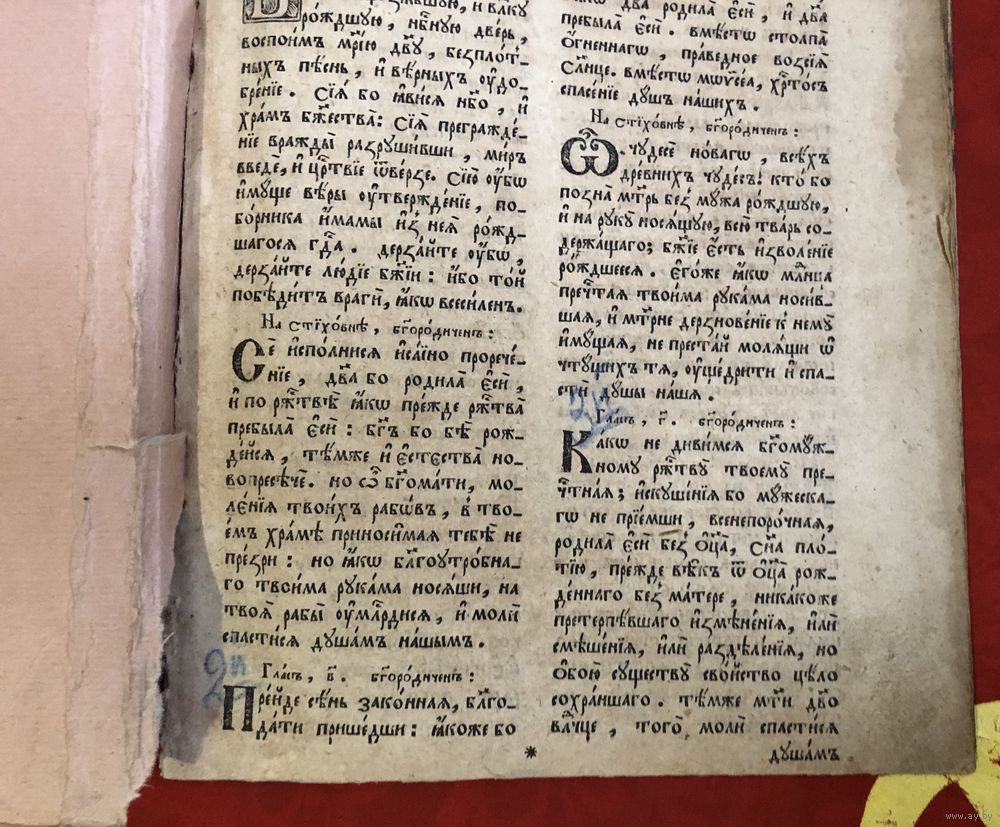 рождшую, нбⷭ҇ную две́рь,
воспои́мъ мр҃і́ю дв҃у, безпло́т-
ныхъ пѣ́снь, и҆ вѣ́рныхъ ᲂу҆до-
бре́нїе. сїѧ́ бо ꙗ҆ви́сѧ нб҃о, и҆
хра́мъ бж҃ества̀: сїѧ̀ прегражде́-
нїе вражды̀ разрꙋши́вши, ми́ръ
введѐ, и҆ црⷭ҇твїе ѿве́рзе. сїю̀ ᲂу҆́бѡ
и҆мꙋ́ще вѣ́ры ᲂу҆твержде́нїе, по-
бо́рника и҆́мамы и҆з̾ неѧ̀ ро́жд-
шагосѧ гдⷭ҇а. дерза́йте ᲂу҆́бѡ,
дерза́йте лю́дїе бж҃їи: и҆́бо то́й
побѣди́тъ враги̑, ꙗ҆́кѡ всеси́ленъ.
На стїхо́внѣ, бг҃оро́диченъ:
Сѐ и҆спо́лнисѧ и҆са́їино прорече́-
нїе, дв҃а бо родила̀ є҆сѝ,
и҆ по ржⷭ҇твѣ̀ ꙗ҆́кѡ пре́жде ржⷭ҇тва̀
пребыла̀ є҆сѝ: бг҃ъ бо бѣ̀ рож-
де́йсѧ, тѣ́мже и҆ є҆стества̀ но-
вопресѣчѐ. но ѽ бг҃ома́ти, мо-
ле́нїѧ твои́хъ рабѡ́въ, в̾ тво-
е́мъ хра́мѣ приноси́маѧ тебѣ̀ не
пре́зри: но ꙗ҆́кѡ бл҃гоꙋтро́бна-
го твои́ма рꙋка́ма носѧ́щи, на
твоѧ̑ рабы̑ ᲂу҆млⷭ҇рдисѧ, и҆ молѝ
спасти́сѧ дꙋша́мъ на́шымъ.
Гла́съ, в҃. бг҃оро́диченъ:
Пре́йде сѣ́нь зако́ннаѧ, бл҃го-
да́ти прише́дши: ꙗ҆́коже бо
два̀ родила̀ є҆сѝ, и҆ дв҃а
пребыла̀ є҆сѝ. вмѣ́стѡ столпа̀
ѻ҆́гненнагѡ, пра́ведное возсїѧ̀
сл҃нце. вмѣ́стѡ мѡѷсе́а, хрⷭ҇то́съ
спасе́нїе дꙋ́шъ на́шихъ.
На стїхо́внѣ, бг҃оро́диченъ:
Ѽ чꙋдесѐ но́вагѡ, всѣ́хъ
дре́внихъ чꙋде́съ! кто́ бо
позна̀ мт҃рь без̾ мꙋ́жа ро́ждшꙋю,
и҆ на рꙋкꙋ̀ носѧ́щꙋю, всю̀ тва́рь со-
держа́щаго; бж҃їе є҆́сть и҆зволе́нїе
ро́ждшеесѧ. є҆го́же ꙗ҆́кѡ млⷣнца
пречⷭ҇таѧ твои́ма рꙋка́ма носи́в-
шаѧ, и҆ мт҃рне дерзнове́нїе к̾ немꙋ̀
и҆мꙋ́щаѧ, не преста́й молѧ́щи ѡ҆
чтꙋ́щихъ тѧ̀, ᲂу҆ще́дрити и҆ спа-
стѝ дꙋ́шы на́шѧ.
Гла́съ, г҃. бг҃оро́диченъ:
Ка́кѡ не диви́мсѧ бг҃омꙋ́ж-
номꙋ ржⷭ҇твꙋ̀ твоемꙋ̀ пре-
чⷭ҇тнаѧ; и҆скꙋше́нїѧ бо мꙋ́жеска-
гѡ не прїе́мши, всенепоро́чнаѧ,
родила̀ є҆сѝ без̾ ѻ҆ц҃а̀, сн҃а пло́-
тїю, пре́жде вѣ̑къ ѿ ѻ҆ц҃а̀ рож-
де́ннаго без̾ ма́тере, ника́коже
претерпѣ́вшаго и҆змѣне́нїѧ, и҆лѝ
смѣше́нїѧ, и҆лѝ раздѣле́нїѧ, но
ѻ҆бою̀ сꙋществꙋ̀ сво́йство цѣ́ло
сохра́ншаго. тѣ́мже мт҃и дв҃о
влⷣчце, того̀ молѝ спасти́сѧ
дꙋша́мъ
www.ay.by